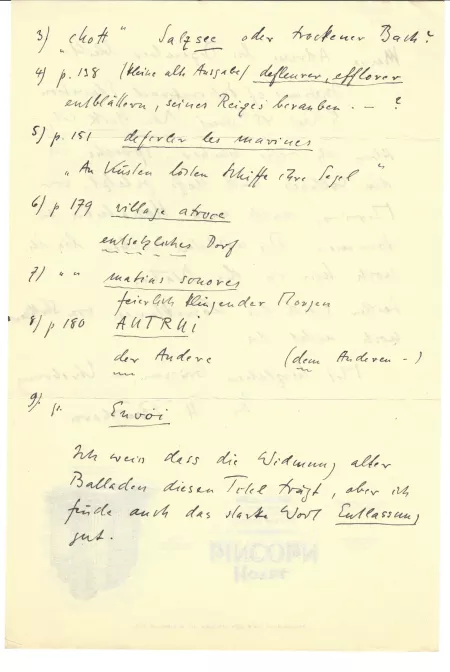 3) "chott" Salzsee oder trockener Bach?
4) p. 138 (kleine alte Ausgabe) defleurer, efflorer
entblättern, seines Reizes berauben. — ?
5) p. 151 deferler les marines
"An Küsten lösten Schiffe ihre Segel"
6) p 179 village atroce
entsetzliches Dorf
7) " " matins sonores
feierlich klingender Morgen
8) p 180 AUTRUI
der Andere (dem Anderen -)
9) p. Envoi
Ich weiss dass die Widmung alter
Balladen diesen Titel trägt, aber ich
finde auch das starke Wort Entlassung
gut.
PINCOFFN